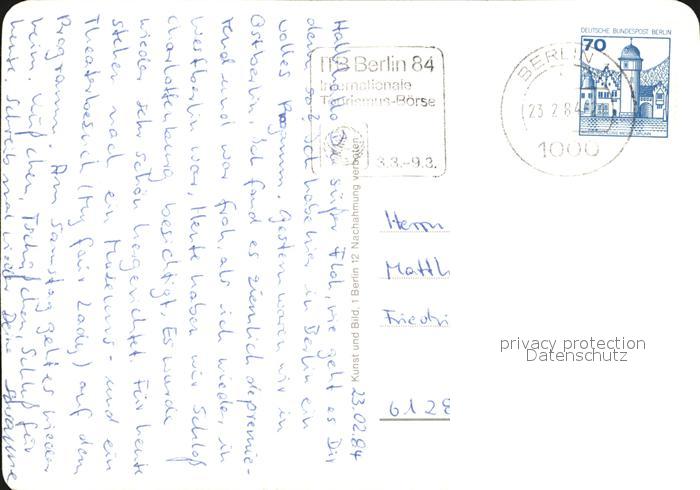 23.02.84
Hallo Du süßer Floh, wie geht es Dir
denn so? Ich habe hier in Berlin ein
volles Programm. Gestern waren wir in
Ostberlin. Ich fand es ziemlich deprimie-
rend und war froh, als ich wieder in
Westberlin war. Heute haben wir Schloß
Charlottenburg besichtigt. Es wurde
wieder sehr schön hergerichtet. Für heute
stehen noch ein Museums- und ein
Theaterbesuch (My fair Lady) auf dem
Programm. Am Samstag geht es wieder
heim. Tschüßchen, Schluß für
heute. Schreib mal wieder Deine
Kunst und Bild, 1 Berlin 12 Nachahmung verboten
ITB Berlin 84
Internationale
Tourismus-Börse
3.3.–9.3.
BERLIN
23.2.84
1000
DEUTSCHE BUNDESPOST BERLIN
70
Herrn
Matth
Friedri
6128
privacy protection
Datenschutz